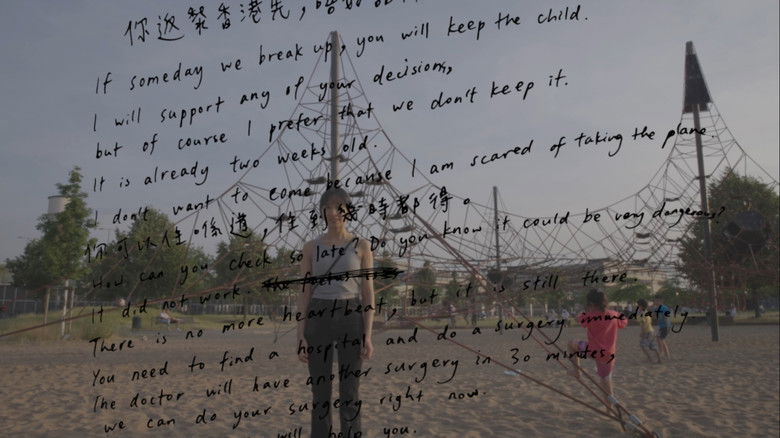 你返黎香港先，
If someday we break up, you will keep the child.
I will support any of your decisions,
but of course I prefer that we don't keep it.
It is already two weeks old.
I don't want to come because I am scared of taking the plane
你可以住喺道，住到幾時都得。
How can you check so late? Do you know it could be very dangerous?
It did not work. the foetus is
There is no more heartbeat, but it is still there
You need to find a hospital and do a surgery immediately
The doctor will have another surgery in 30 minutes,
we can do your surgery right now.
will help you.